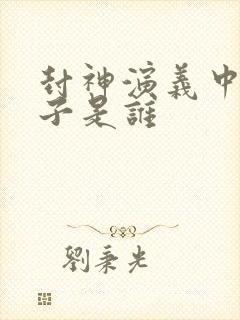 封神演義中
子是誰
劉秉光